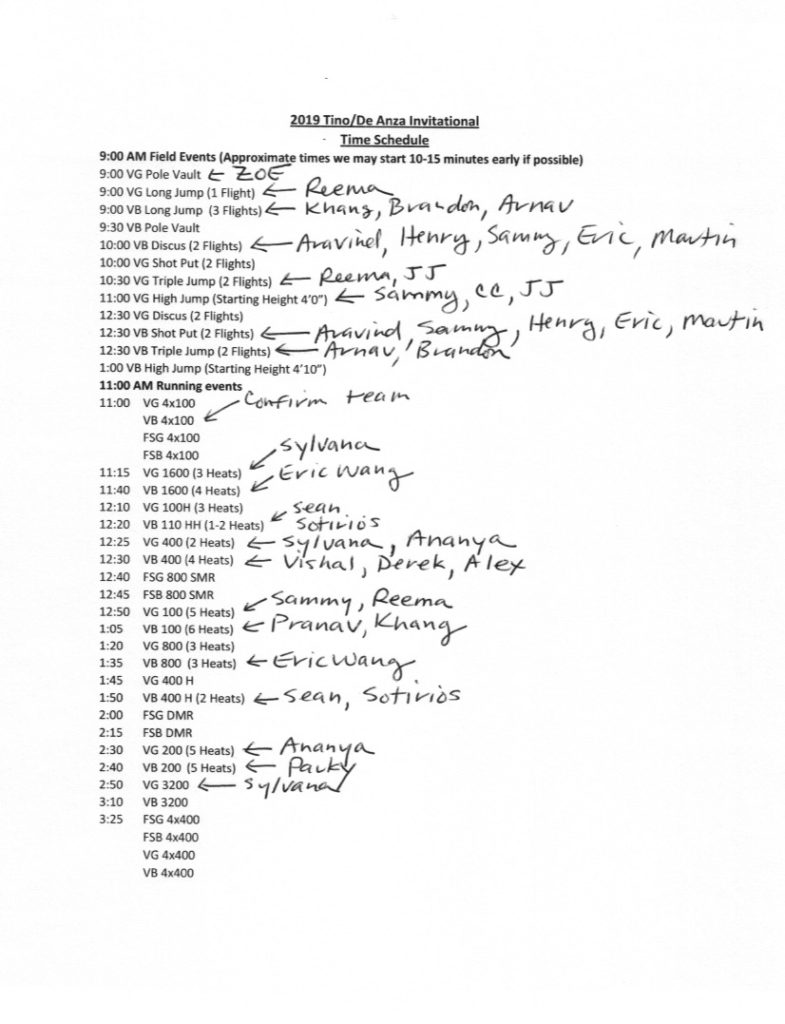 2019 Tino/De Anza Invitational
Time Schedule
9:00 AM Field Events (Approximate times we may start 10-15 minutes early if possible)
9:00 VG Pole Vault ← ZOE
9:00 VG Long Jump (1 Flight) ← Reema
9:00 VB Long Jump (3 Flights) ← Khang, Brandon, Arnav
9:30 VB Pole Vault
10:00 VB Discus (2 Flights) ← Aravind, Henry, Sammy, Eric, Martin
10:00 VG Shot Put (2 Flights)
10:30 VG Triple Jump (2 Flights) ← Reema, JJ
11:00 VG High Jump (Starting Height 4'0") ← Sammy, CC, JJ
12:30 VG Discus (2 Flights)
12:30 VB Shot Put (2 Flights) ← Aravind, Sammy, Henry, Eric, Martin
12:30 VB Triple Jump (2 Flights) ← Arnav, Brandon
1:00 VB High Jump (Starting Height 4'10")
11:00 AM Running events
11:00 VG 4x100 Confirm team
VB 4x100 ←
FSG 4x100
FSB 4x100
11:15 VG 1600 (3 Heats) ← Sylvana
11:40 VB 1600 (4 Heats) ← Eric Wang
12:10 VG 100H (3 Heats)
12:20 VB 110 HH (1-2 Heats) ← Sean, Sotirios
12:25 VG 400 (2 Heats) ← Sylvana, Ananya
12:30 VB 400 (4 Heats) ← Vishal, Derek, Alex
12:40 FSG 800 SMR
12:45 FSB 800 SMR
12:50 VG 100 (5 Heats) ← Sammy, Reema
1:05 VB 100 (6 Heats) ← Pranav, Khang
1:20 VG 800 (3 Heats)
1:35 VB 800 (3 Heats) ← Eric Wang
1:45 VG 400 H
1:50 VB 400 H (2 Heats) ← Sean, Sotirios
2:00 FSG DMR
2:15 FSB DMR
2:30 VG 200 (5 Heats) ← Ananya
2:40 VB 200 (5 Heats) ← Packy
2:50 VG 3200 ← Sylvana
3:10 VB 3200
3:25 FSG 4x400
FSB 4x400
VG 4x400
VB 4x400